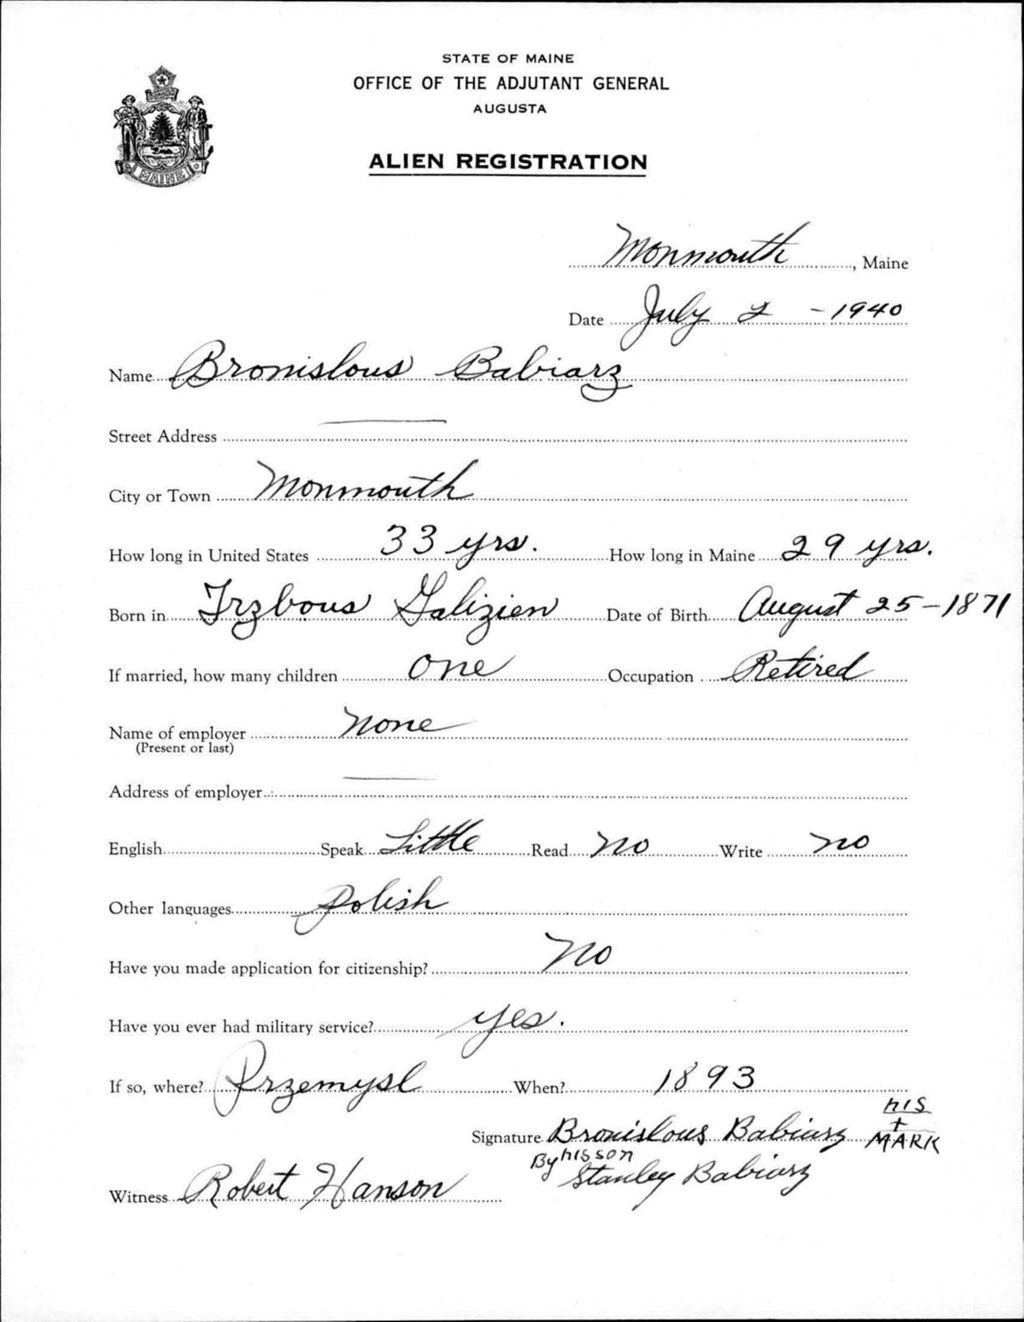 STATE OF MAINE
OFFICE OF THE ADJUTANT GENERAL
AUGUSTA
ALIEN REGISTRATION
MAINE
Monmouth, Maine
Date July 2 - 1940
Name Bronislous Babiarz
Street Address
City or Town Monmouth
How long in United States 33 yrs. How long in Maine 29 yrs.
Born in Trzbous Galizien Date of Birth August 25-1871
If married, how many children one Occupation Retired
Name of employer none
(Present or last)
Address of employer
English Speak Little Read no Write no
Other languages Polish
Have you made application for citizenship? no
Have you ever had military service? yes.
If so, where? Przemysl When? 1893
Signature Bronislous Babiarz his + MARK
By his son Stanley Babiarz
Witness Robert Hanson